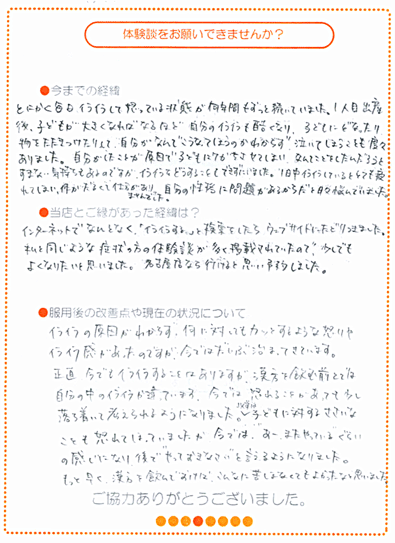 体験談をお願いできませんか？
●今までの経緯
とにかく毎日イライラして怒っている状態が何年間もずっと続いていました。1人目出産
後、子どもが大きくなればなるほど自分のイライラも酷くなり、子どもにどなったり
物をたたきつけたりして、自分がなんでこうなってしまうのかわからず、泣いてしまうことも度々
ありました。自分がしたことが原因で子どもにケガをさせてしまい、なんてことをしたんだろうと
すまない気持ちもあるのですが、イライラをどうすることもできずにいました。1日中イライラしているととても疲
れてしまい、体がだるくて仕方がありませんでした。自分の性格に問題があるからだと日々悩んでいました。
●当店とご縁があった経緯は？
インターネットでなんとなく、「イライラする」と検索をしたらウップサイドにたどりつきました。
私と同じような症状の方の体験談が多く掲載されていたので、少しでも
よくなりたいと思いました。名古屋なら行けると思い予約しました。
●服用後の改善点や現在の状況について
イライラの原因がわからず、何に対してもカッとするような怒りや
イライラ感があったのですが、今ではだいぶ治まってきています。
正直今でもイライラすることはありますが、漢方を飲む前とでは
自分の中のイライラが違っています。今では怒ることがあっても少し
落ち着いて考えられるようになりました。以前は子どもに対するささいな
ことも怒れてしまっていましたが今では、「あー、またやっている」ぐらい
の感じになり後で「やっておきなさい」と言えるようになりました。
もっと早く、漢方を飲んでおけば、こんなに苦しまなくてもよかったなと思いました。
ご協力ありがとうございました。